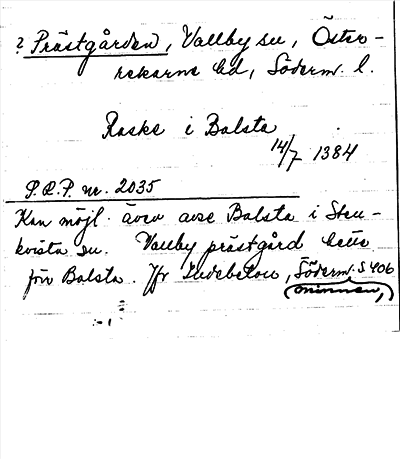 ? Prästgården, Vallby sn, Öster-
rekarne hd, Söderm. l.
Raske i Balsta
14/7 1384
S.R.P. nr. 2035
Kan möjl. även avse Balsta i Sten-
kvista sn. Vallby prästgård hette
förr Balsta. Jfr Indebetou, Söderm. S 406
minnen,